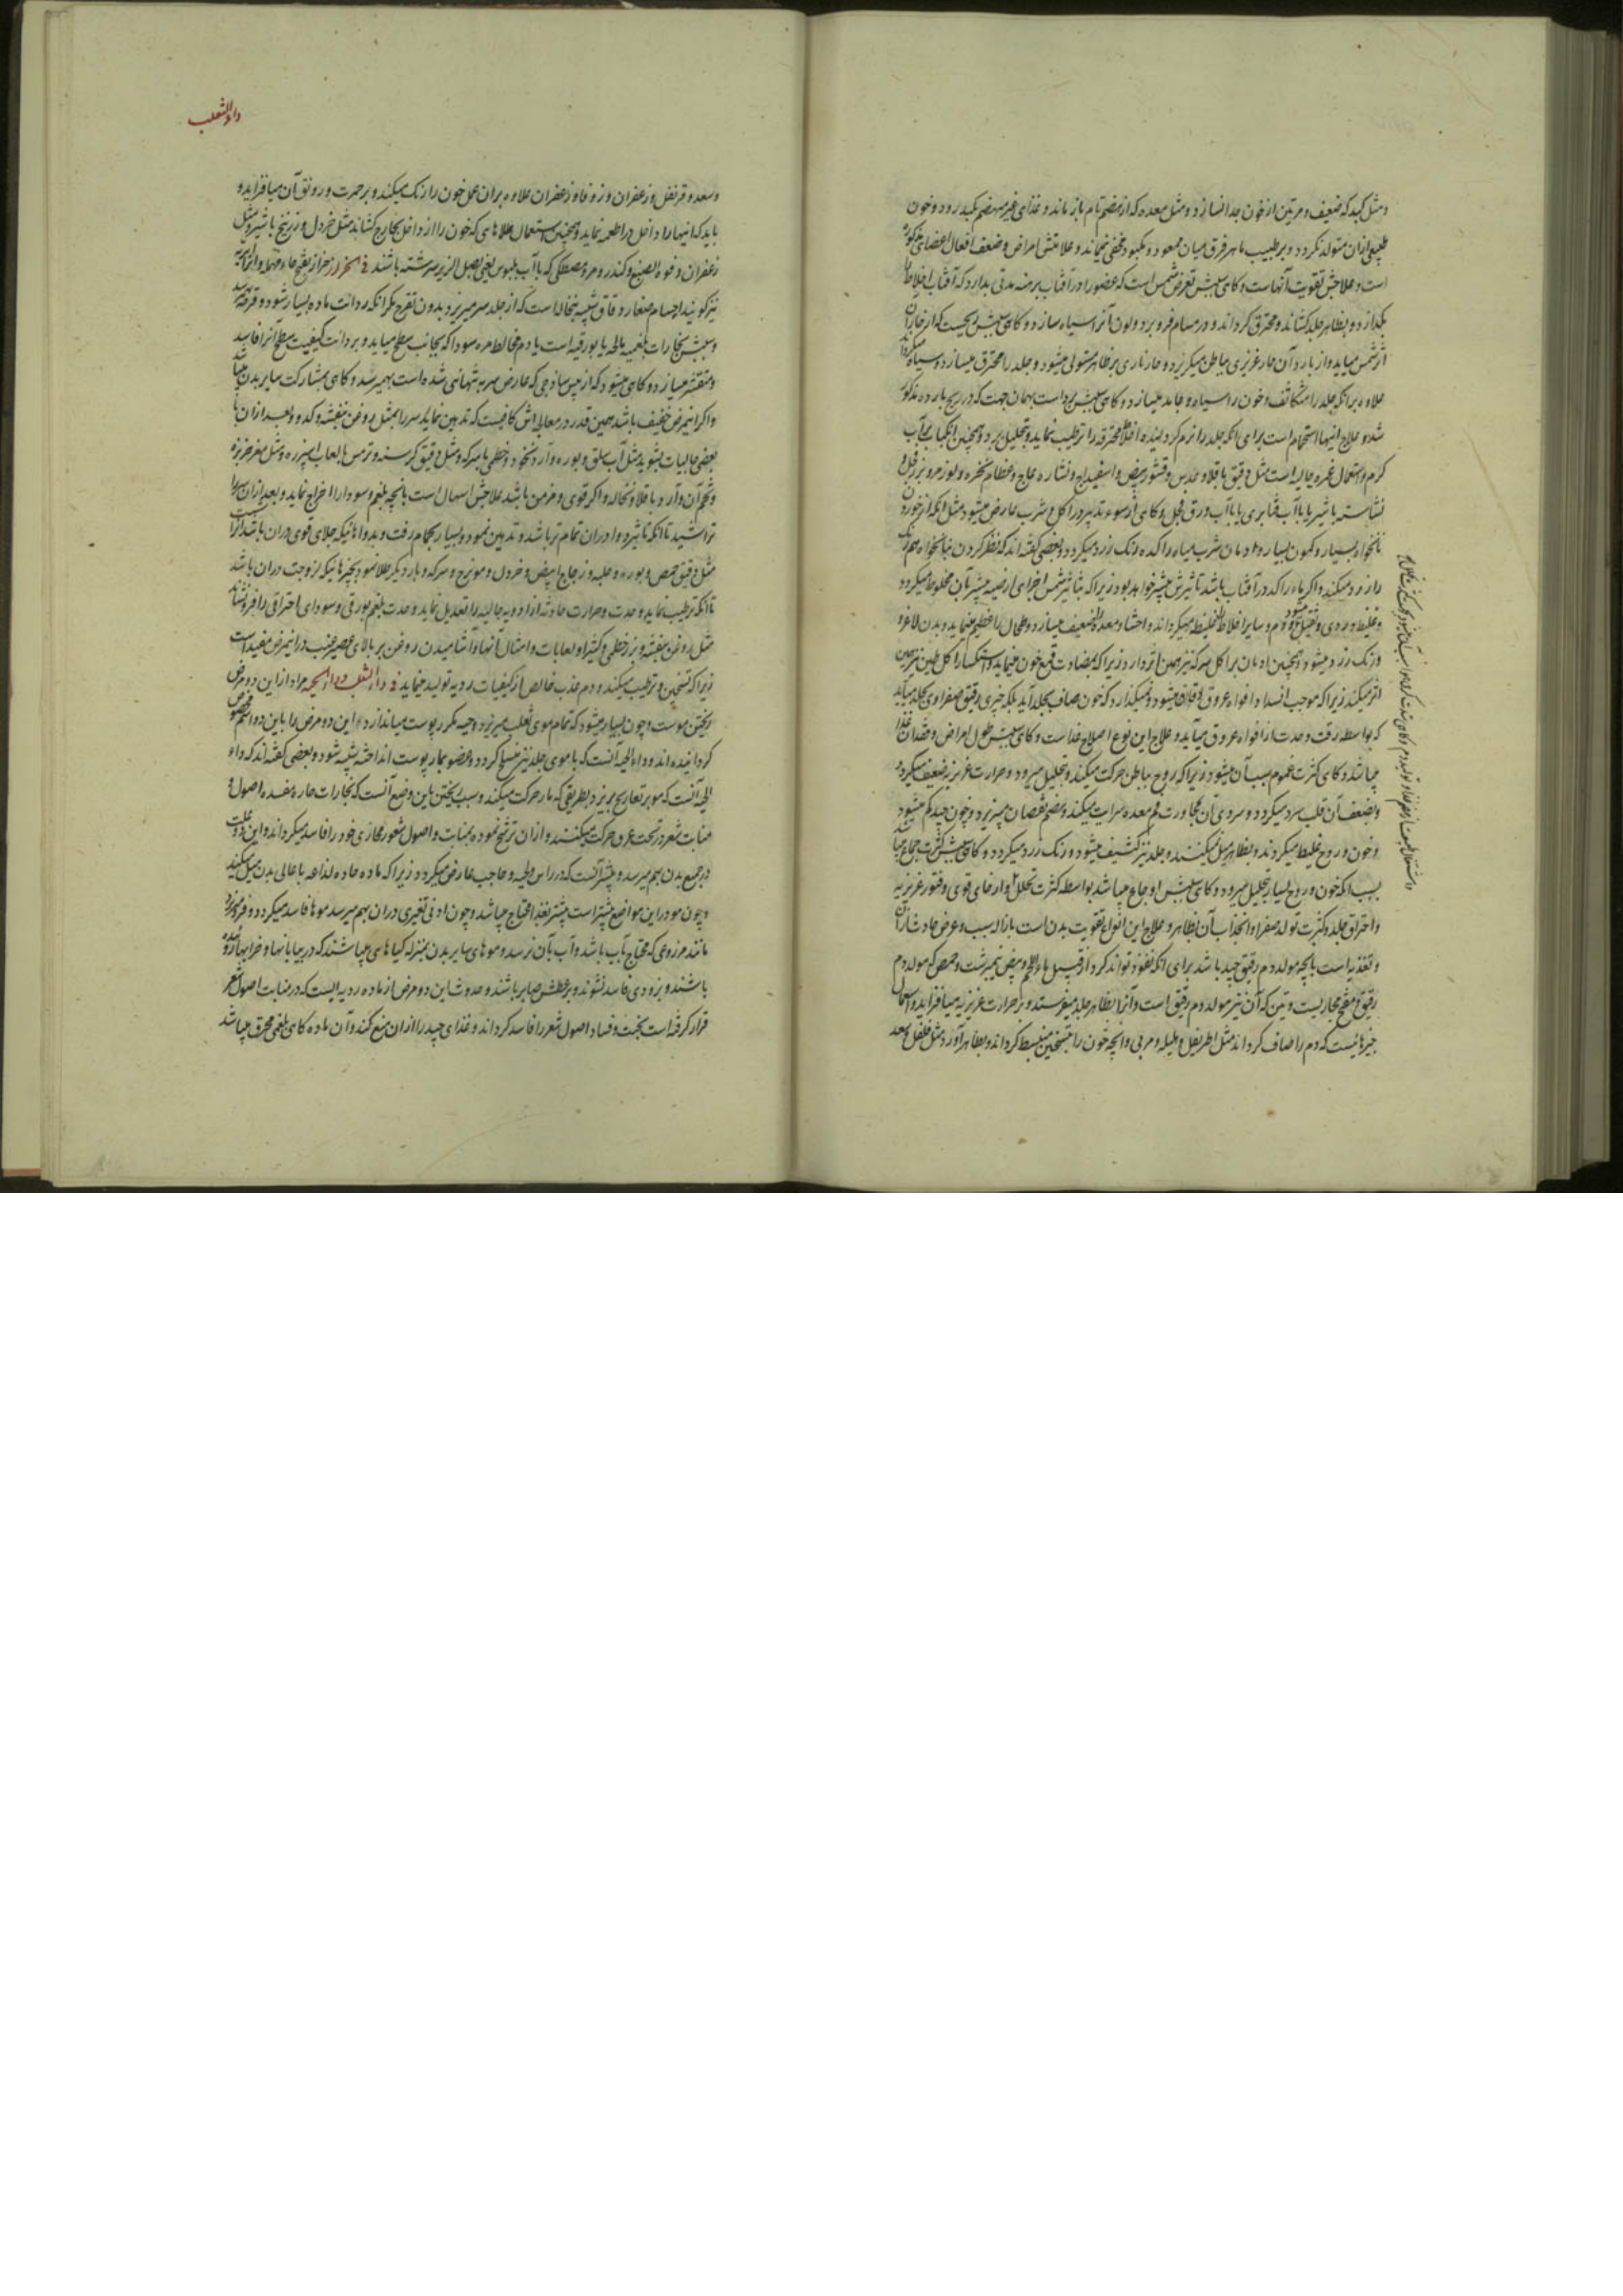 و مثل کبد که ضعیف و مرتین از خون جدا نسازد و مثل معده که از هضم تام باز ماند و غذای غیر منهضم بکبد رود و خون
طبیعی ازان متولد نکردد و بر طبیب ماهر فرق میان معود و مکبود مخفی نماند و علامتش امراض و ضعف افعال اعضای مذکوره
است و علاجش تقویت آنهاست و کاهی سببش تعرض شمس است که عضو را در آفتاب برهنه مدتی بدارد که آفتاب اخلاط را
بکدازد و بظاهر جلد کشاند و محترق کرداند و در مسام فرو برد و لون آنرا سیاه سازد و کاهی سببش
از شمس میاید و از بارد آن حار غریزی بباطن میکریزد و حار ناری بر ظاهر مستولی میشود و جلد را محترق میسازد و سیاه میکرداند
علاوه بر آنکه جلد را متکاثف و خون را سیاه و جامد میسازد و کاهی سببش برد است بهمان جهت که در ریح بارده مذکور
شد و علاج اینها استحمام است برای آنکه جلد را نرم کردانیده اخلاط محترقه را ترطیب نماید و بتحلیل برد و همچنین انکباب بر آب
کرم و استعمال غمره جالیه است مثل دقیق باقلا و عدس و قشور بیض و اسفیداج و نشاره عاج و عظام نخره و لوز مر و بزر فجل و
نشاسته با شیر یا با آب قنابری یا با آب ورق فجل و کاهی از سوء تدبیر در اکل و شرب عارض میشود مثل آنکه از خوردن
نانخواه بسیار و کمون بسیار و ادمان شرب میاه راکده رنک زرد میکردد و بعضی کفته اند که نظر کردن بنانخواه هم رنک
را زرد میکند و اکر ماء راکد در آفتاب باشد تاثیرش بیشتر خواهد بود زیرا که بتاثیر شمس اجزای ارضیه بیشتر بآن مخلوط میکردد
و غلیظ و ردی و ثقیل میشود و دم و سایر اخلاط را غلیظ میکرداند و احشا و معده را ضعیف میسازد و طحال را عظیم مینماید و بدن لاغر و
و رنک زرد میشود و همچنین ادمان بر اکل سرکه نیز همین اثر دارد زیرا که بمضادت قمع خون مینماید و استکثار اکل طین نیز همین
اثر میکند زیرا که موجب انسداد افواه عروق دقاق میشود و نمیکذارد که خون صاف بجلد آید بلکه چیزی رقیق صفراوی بجلد میآید
که بواسطه رقت و حدت از افواه عروق میآید و علاج این نوع اصلاح غذاست و کاهی سببش طول امراض و فقدان غذا
میباشد و کاهی کثرت غموم سبب آن میشود زیرا که روح بباطن حرکت میکند و بتحلیل میرود و حرارت غریزیه ضعیف میکردد و
و بضعف آن قلب سرد میکردد و سردی آن بمجاورت فم معده سرایت میکند و هضم نقصان میپزیرد و چون جید کم میشود
و خون و روح غلیظ میکردند و بظاهر میل نمیکنند و جلد نیز کثیف میشود و رنک زرد میکردد و کاهی سببش کثرت جماع میباشد
بسبب آنکه خون و روح بسیار بتحلیل میرود و کاهی سببش اوجاع میباشد بواسطه کثرت تحلل و ارخای قوی و فتور غریزیه
و احتراق جلد و کثرت تولد صفرا و انجذاب آن بظاهر و علاج این انواع تقویت بدن است بازاله سبب و عرض حادث ازان
و تغذیه است بآنچه مولد دم رقیق جید باشد برای آنکه نفوذ تواند کرد از قبیل ماء اللحم و بیض نیمبرشت و حمص که مولد دم
رقیق و مفتح مجاریست و تین که آن نیز مولد دم رقیق است و آنرا بظاهر جلد میفرستد و بر حرارت غریزیه میافزاید و استعمال
چیزهائیست که دم را صاف کرداند مثل اطریفل و هلیله و مربی و آنچه خون را بتسخین منبسط کرداند و بظاهر آورد مثل فلفل و سعد
داء الثعلب
و سعد و قرنفل و زعفران و زوفا و زعفران علاوه بران عمل خون را رنک میکند و بر حمرت و رونق آن میافزاید و
باید که اینها را داخل در اطعمه نماید و همچنین استعمال طلاهای که خون را از داخل بخارج کشاند مثل خردل و زرنیخ با شیر و مثل
زعفران و فوه الصبغ و کندر و مر و مصطکی که با آب بلبوس یعنی بصل الزیر سرشته باشند فی الحزاز حزاز بفتح حاء مهمله و آنرا ابریه
نیز کویند اجسام صغار دقاق شبیه بنخاله است که از جلد سر میریزد بدون تقرح مکر آنکه ردائت ماده بسیار شود و قرحه
و سببش بخارات بلغمیه مالحه یا بورقیه است یا دم مخالط مره سودا که بجانب سطح میاید و بردائت کیفیت سطح آنرا فاسد
و متقشر میسازد و کاهی میشود که از یبس ساذجی که عارض سر به تنهائی شده است بهمیرسد و کاهی بمشارکت سایر بدن میباشد
و اکر این مرض خفیف باشد همین قدر در معالجه اش کافیست که تدهین نماید سر را بمثل روغن بنفشه و کدو و بعد ازان با
بعضی جالیات بشوید مثل آب سلق و بوره و آرد نخود و خطمی با سرکه و مثل دقیق کرسنه و ترمس با لعاب اسپرزه و مثل مغز خربزه
و تخم آن و آرد باقلا و نخاله و اکر قوی و مزمن باشد علاجش اسهال است بآنچه بلغم و سودا را اخراج نماید و بعد ازان سر را
تراشید تا آنکه تاثیر دوا دران تمام تر باشد و تدهین نمود و بسیار بحمام رفت و بدواهائیکه جلای قوی دران باشد
مثل دقیق حمص و بوره و حلبه و زجاج ابیض و خردل و مویزج و سرکه و بار دیکر طلا نمود بچیزهائیکه لزوجت دران باشد
تا آنکه ترطیب نماید و حدت و حرارت حادثه از ادویه جالیه را تعدیل نماید و حدت بلغم بورقی و سودای احتراقی را فرو نشاند
مثل روغن بنفشه و بزر خطمی و کثیرا و لعابات و امثال آنها و آشامیدن روغن بر بالای عصیر عنب در این مرض مفید است
زیرا که تسخین و ترطیب میکند و دم عذب خالص از کیفیات ردیه تولید مینماید فی داء الثعلب و داء الحیه مراد از این دو مرض
ریختن موست و چون بسیار میشود که تمام موی ثعلب میریزد و حیه مکرر پوست میاندازد این دو مرض را باین دو اسم مخصوص
کردانیده اند و داء الحیه آنست که با موی جلد نیز منسلخ کردد و عضو بمار پوست انداخته شبیه شود و بعضی کفته اند که داء
الحیه آنست که مو بر تعاریج بریزد بطریقی که مار حرکت میکند و سبب ریختن باین وضع آنست که بخارات حاره مفسده اصول و
منابت شعر در تحت عرق حرکت میکنند و ازان ترشح نموده بمنابت و اصول شعور مجازی خود را فاسد میکرداند و این دو علت
در جمیع بدن بهم میرسد و بیشتر آنست که در راس و لحیه و حاجب عارض میکردد زیرا که ماده حاده لذاعه باعالی بدن میل میکند
و چون مو در این مواضع بیشتر است بیشتر بغذا محتاج میباشد و چون ادنی تغیری دران بهم میرسد موها فاسد میکردد و فرو میریزد
مانند مزروعی که محتاج بآب باشد و آب بآن نرسد و موهای سایر بدن بمنزله کیاهای میباشند که در بیابانها و خرابها روئیده
باشند و بزودی فاسد نشوند و بر عطش صابر باشند و حدوث این دو مرض از ماده ردیه ایست که در منابت اصول شعر
قرار کرفته است بخبث و فساد اصول شعر را فاسد کرداند و غذای جید را ازان منع کند و آن ماده کاهی بلغمی محترق میباشد